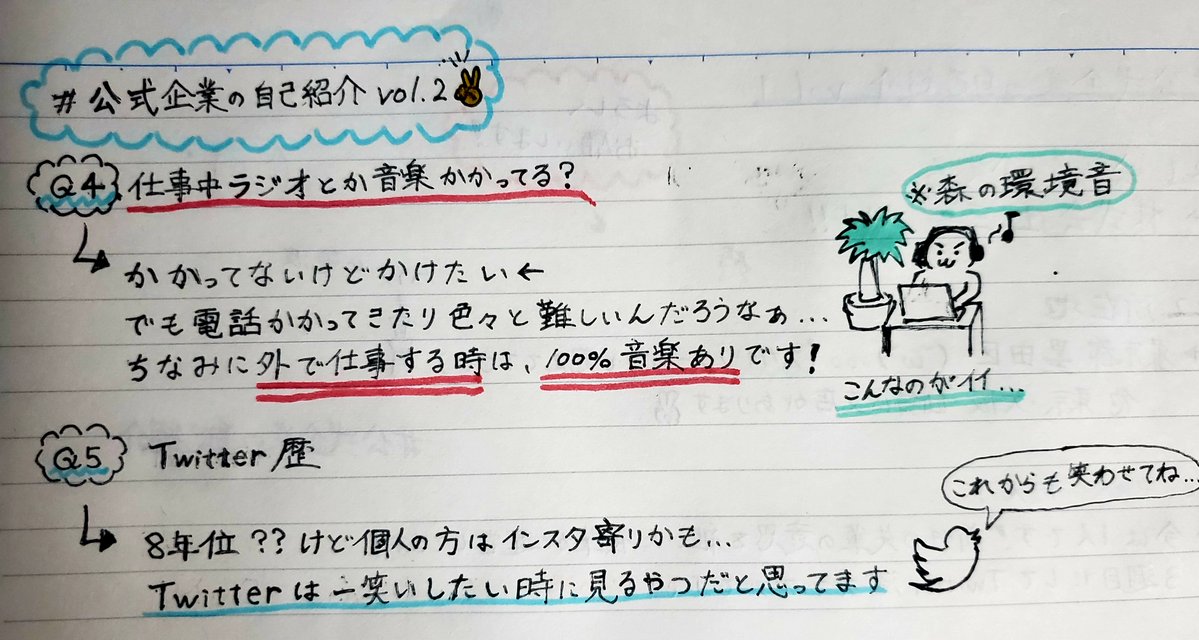 #公式企業の自己紹介 vol.2
Q4 仕事中ラジオとか音楽かかってる?
※森の環境音
かかってないけどかけたい←
でも電話かかってきたり色々と難しいんだろうなぁ...
ちなみに外で仕事する時は、100%音楽ありです!
こんなのがイイ...
Q5 Twitter歴
これからも笑わせてね...
8年位??けど個人の方はインスタ寄りかも...
Twitterは一笑いしたい時に見るやつだと思ってます